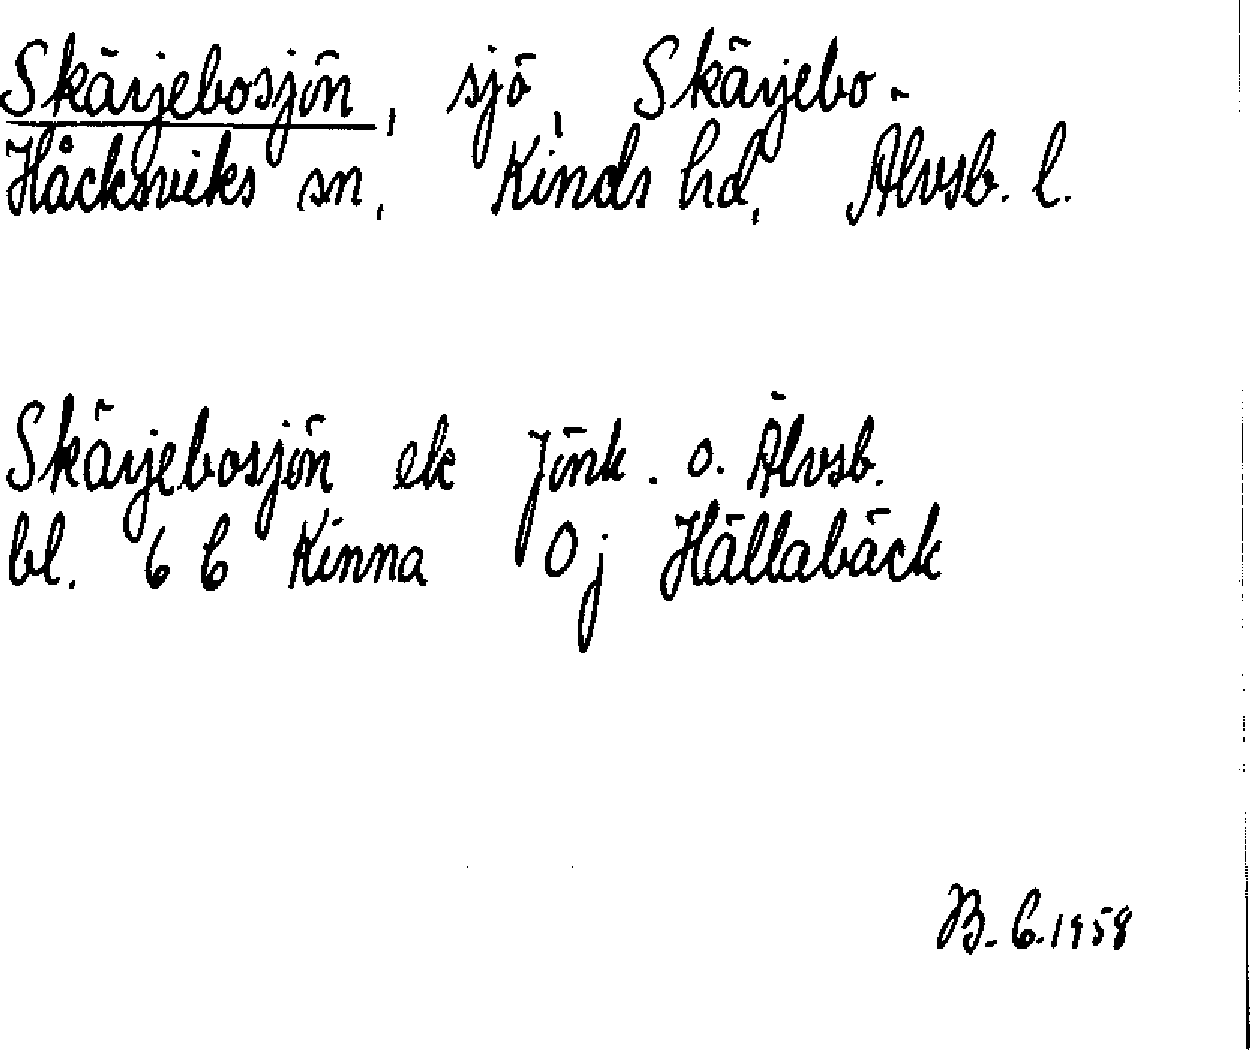 Skärjebosjön, sjö, Skärjebo-
Håcksviks sn, Kinds hd, Älvsb. l.
Skärjebosjön ek Jönk. o. Älvsb.
bl. 6 6 Kinna Oj Hällabäck
B. 6. 1958